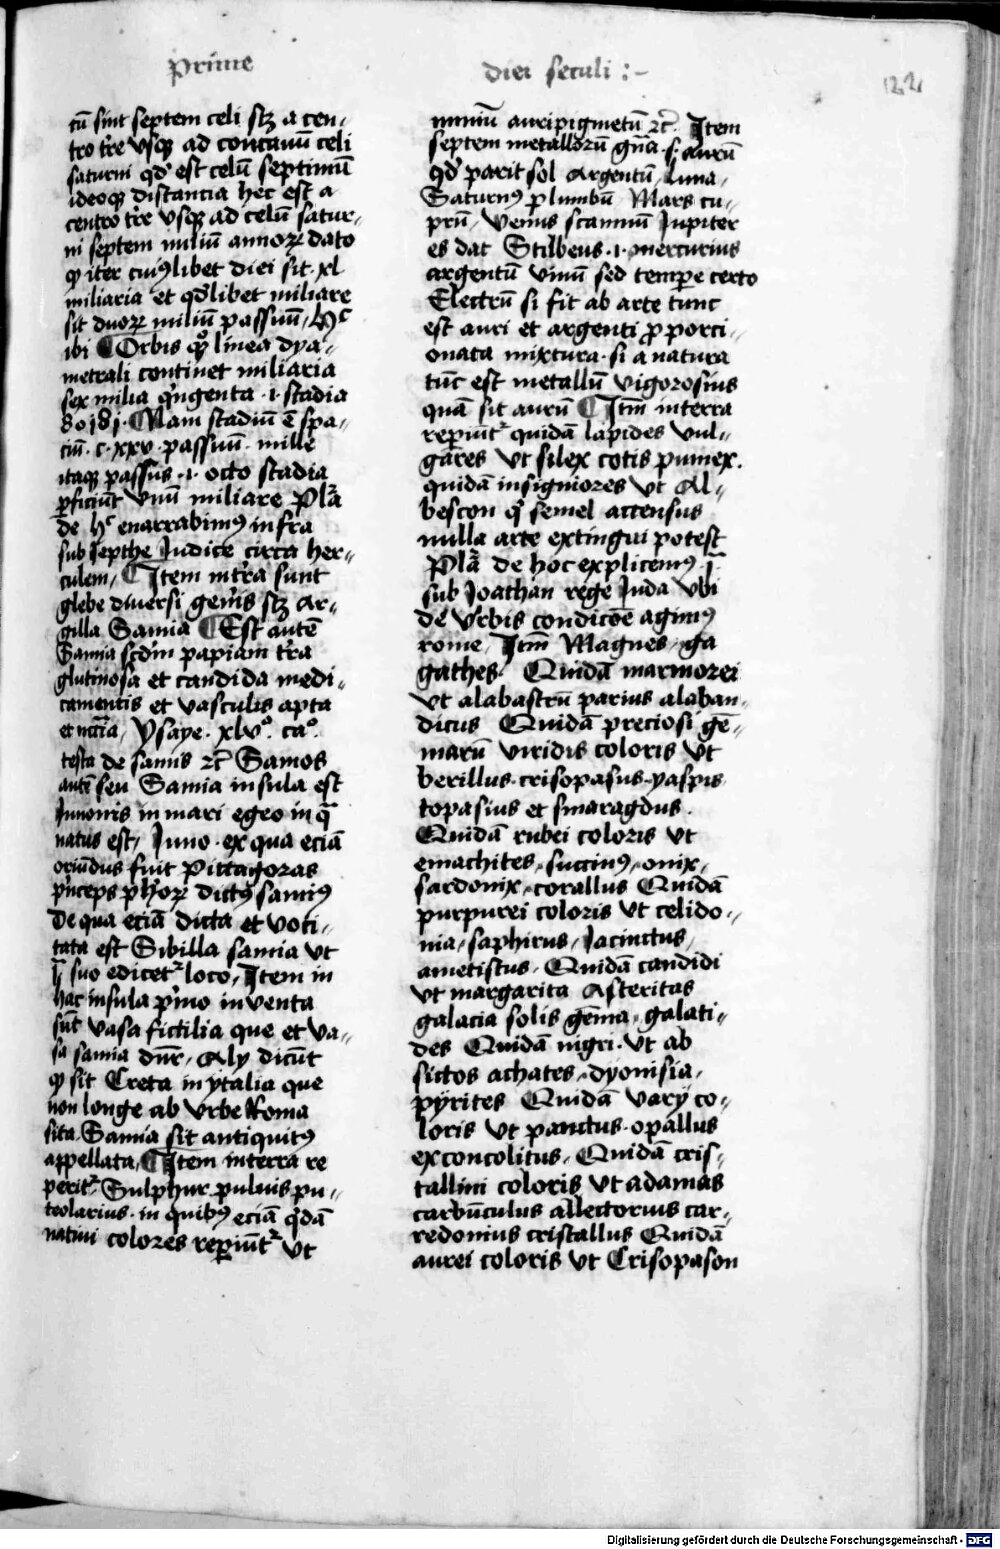 Prime diei seculi :~
122
cū sint septem celi sꝫ a cen-
tro tr̄e vsqꝫ ad concauū celi
saturni qd̕ est celū septimū
ideoqꝫ distancia hec est a
centro tr̄e vsqꝫ ad celū satur-
ni septem miliū annoꝝ dato
ꝙ iter cuiꝰlibet diei sit xl
miliaria et qd̕libet miliare
sit duoꝝ miliū passuū, hͨ
ibi ¶ Orbis linea dya-
metrali continet miliaria
sex milia q̄ngenta .i. stadia
80181. ¶ Nam stadiū ē spa-
ciū .c.xxv. passuū. mille
itaqꝫ passus .i. octo stadia
ꝑficiūt vnū miliare Pla̅
de hͨ enarrabimꝰ infra
sub Jepthe Judice circa her-
culem, ¶ Item int̄ra sunt
glebe diuersi gen̄is sꝫ ar-
gilla Samia ¶ Est autē
Samia scd̄m papiam t̄ra
glutinosa et candida medi-
camentis et vasculis apta
Ysaye .xlvͦ. caͦ.
testa de samis ⁊c̄ Samos
autē seu Samia insula est
Junonis in mari egeo in q̄
natus est, Juno. ex qua eciā
oriūdus fuit Pittagoras
p̄nceps ph̄oꝝ dictꝰ samiꝰ
De qua eciā dicta et voci-
tata est Sibilla samia vt
ī suo edicet᷑ loco, Item in
hac insula p̄mo inventa
sūt vasa fictilia que et va-
sa samia dn̄r, Aly dicūt
ꝙ sit Creta in ytalia que
non longe ab vrbe Roma
sita. Samia sit antiquitꝰ
appellata, ¶ Item interra re
perit᷑ Sulphur puluis pu-
teolarius. in quibꝰ eciā q̄dā
natiui colores reꝑiūt᷑ vt
miniū auripigmetū ⁊c̄. Item
septem metalloꝝ gn̄a .s. aurū
qd̕ parit sol Argentū, Luna,
Saturnꝰ plumbū Mars cu-
prū, Venus scannū Jupiter
es dat Stilbeus .i. mercurius
argentū viuū sed tempe certo
Electrū si fit ab arte tunc
est auri et argenti ꝓporci-
onata mixtura. si a natura
tūc est metallū vigorosius
quā sit aurū ¶ Itm̄ interra
reꝑiūt᷑ quidā lapides vul-
gares vt silex cotis pumex.
quidā insigniores vt Al-
bescon q̄ semel accensus
nulla arte extingui potest
Pla̅ de hoc explicemꝰ .j.
sub Joathan rege Juda vbi
de vrbis condicōe agimꝰ
rome, Itm̄ Magnes, ga
gathes. Quidā marmorei
vt alabastrū parius alaban-
dicus Quidā preciosi gē-
marū viridis coloris vt
berillus. crisopasus. yaspis
topasius et smaragdus.
Quidā rubei coloris vt
emachites, succinꝰ, onix,
sardonix, corallus Quidā
purpurei coloris vt celido-
nia, saphirus, Jacinctus,
ametistus. Quidā candidi
vt margarita Asteritas
galacia solis gēma, galati-
des Quidā nigri. vt ab
sictos achates, dyonisia,
pyrites Quidā vary co-
loris vt panctus. opallus
exconcolitus, Quidā cris-
tallini coloris vt adamas
carbūculus allectorius car-
redonius cristallus Quidā
aurei coloris vt Crisopason
Digitalisierung gefördert durch die Deutsche Forschungsgemeinschaft - DFG